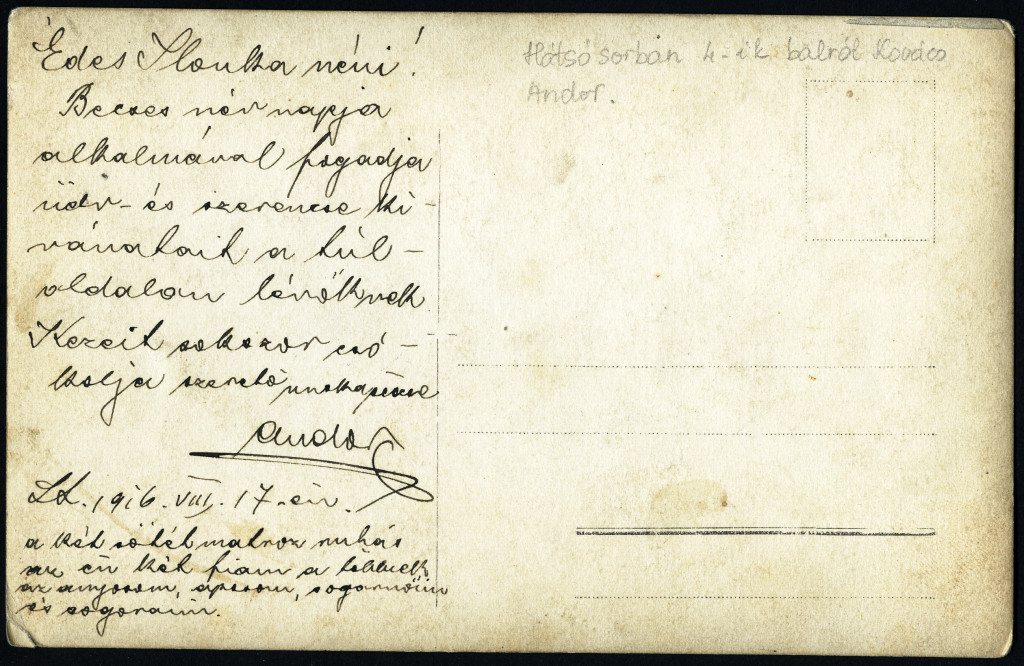 Édes Ilonka néni!
Becses név napja
alkalmával fogadja
üdv- és szerencse ki-
vánatait a túl-
oldalon lévőknek
Kezeit sokszor csó-
kolja szerető unokaöccse
Andor
1916. VIII. 17-én.
a két sötét matroz ruhás
az én két fiam a többiek
az anyosom, aposom, sogornőim
és sogoraim.
Hátsó sorbán 4-ik balról Kovács
Andor.